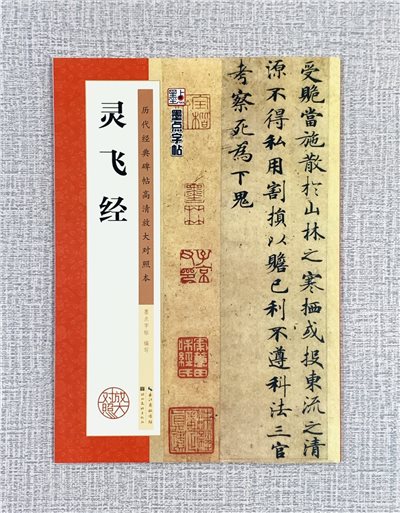 受贶當施散於山林之寒栖或投東流之清
源不得私用割損以贍己利不遵科法三官
考察死為下鬼
墨点字帖
历代经典碑帖高清放大对照本
灵飞经
墨点字帖 编写
放大对照